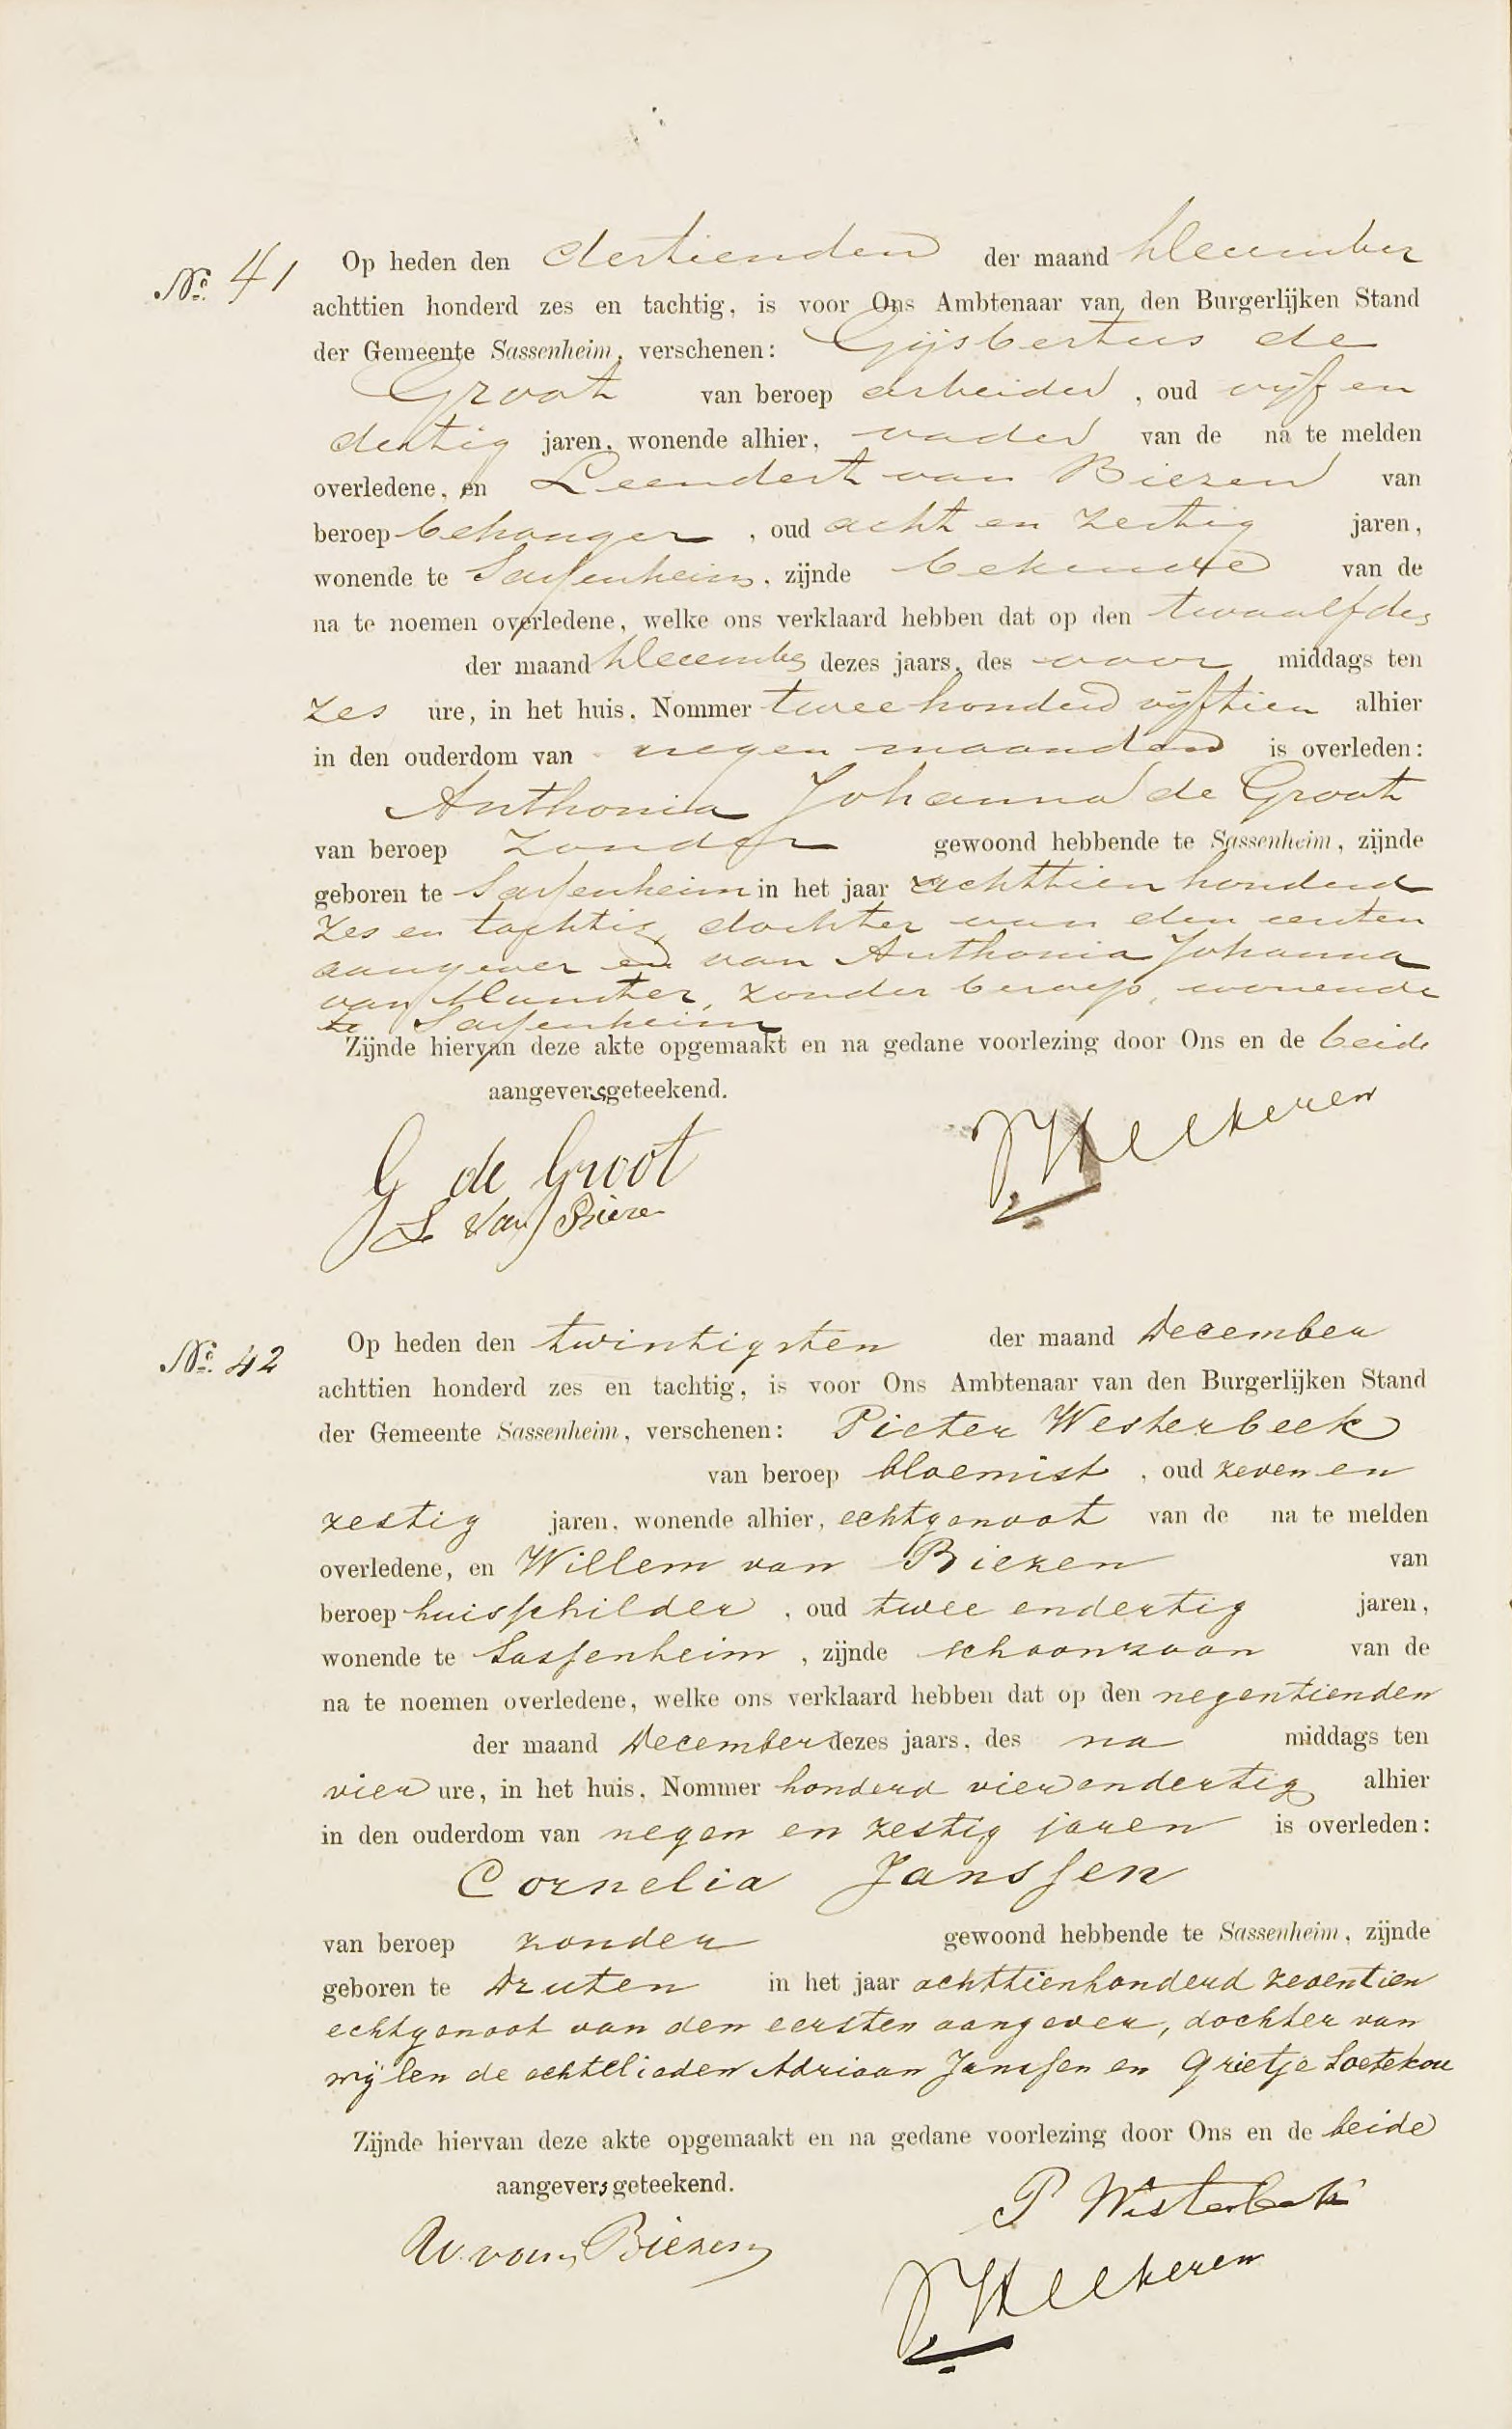 Nº 41
Op heden den dertienden der maand December
achttien honderd zes en tachtig, is voor Ons Ambtenaar van den Burgerlijken Stand
der Gemeente Sassenheim, verschenen: Gijsbertus de
Groot van beroep arbeider, oud vijf en
dertig jaren, wonende alhier, vader van de na te melden
overledene, en Leendert van Biezen van
beroep behanger, oud acht en zestig jaren,
wonende te Sassenheim, zijnde bekende van de
na te noemen overledene, welke ons verklaard hebben dat op den twaalfden
der maand December dezes jaars, des voor middags ten
zes ure, in het huis, Nommer tweehonderd vijftien alhier
in den ouderdom van negen maanden is overleden:
Anthonia Johanna de Groot
van beroep zonder gewoond hebbende te Sassenheim, zijnde
geboren te Sassenheim in het jaar achttienhonderd
zes en tachtig dochter van den eersten
aangever en van Anthonia Johanna
van Munster, zonder beroep, wonende
te Sassenheim
Zijnde hiervan deze akte opgemaakt en na gedane voorlezing door Ons en de beide
aangevers geteekend.
G de Groot
L van Bieze
Nº 42
Op heden den twintigsten der maand December
achttien honderd zes en tachtig, is voor Ons Ambtenaar van den Burgerlijken Stand
der Gemeente Sassenheim, verschenen: Pieter Westerbeek
van beroep bloemist, oud zeven en
zestig jaren, wonende alhier, echtgenoot van de na te melden
overledene, en Willem van Biezen van
beroep huisschilder, oud twee en dertig jaren,
wonende te Sassenheim, zijnde schoonzoon van de
na te noemen overledene, welke ons verklaard hebben dat op den negentienden
der maand December dezes jaars, des na middags ten
vier ure, in het huis, Nommer honderd vier en dertig alhier
in den ouderdom van negen en zestig jaren is overleden:
Cornelia Janssen
van beroep zonder gewoond hebbende te Sassenheim, zijnde
geboren te Druten in het jaar achttienhonderd zeventien
echtgenoot van den eersten aangever, dochter van
wijlen de echtelieden Adriaan Janssen en Grietje Soetekou
Zijnde hiervan deze akte opgemaakt en na gedane voorlezing door Ons en de beide
aangevers geteekend.
P Westerbeek
W. van Biezen